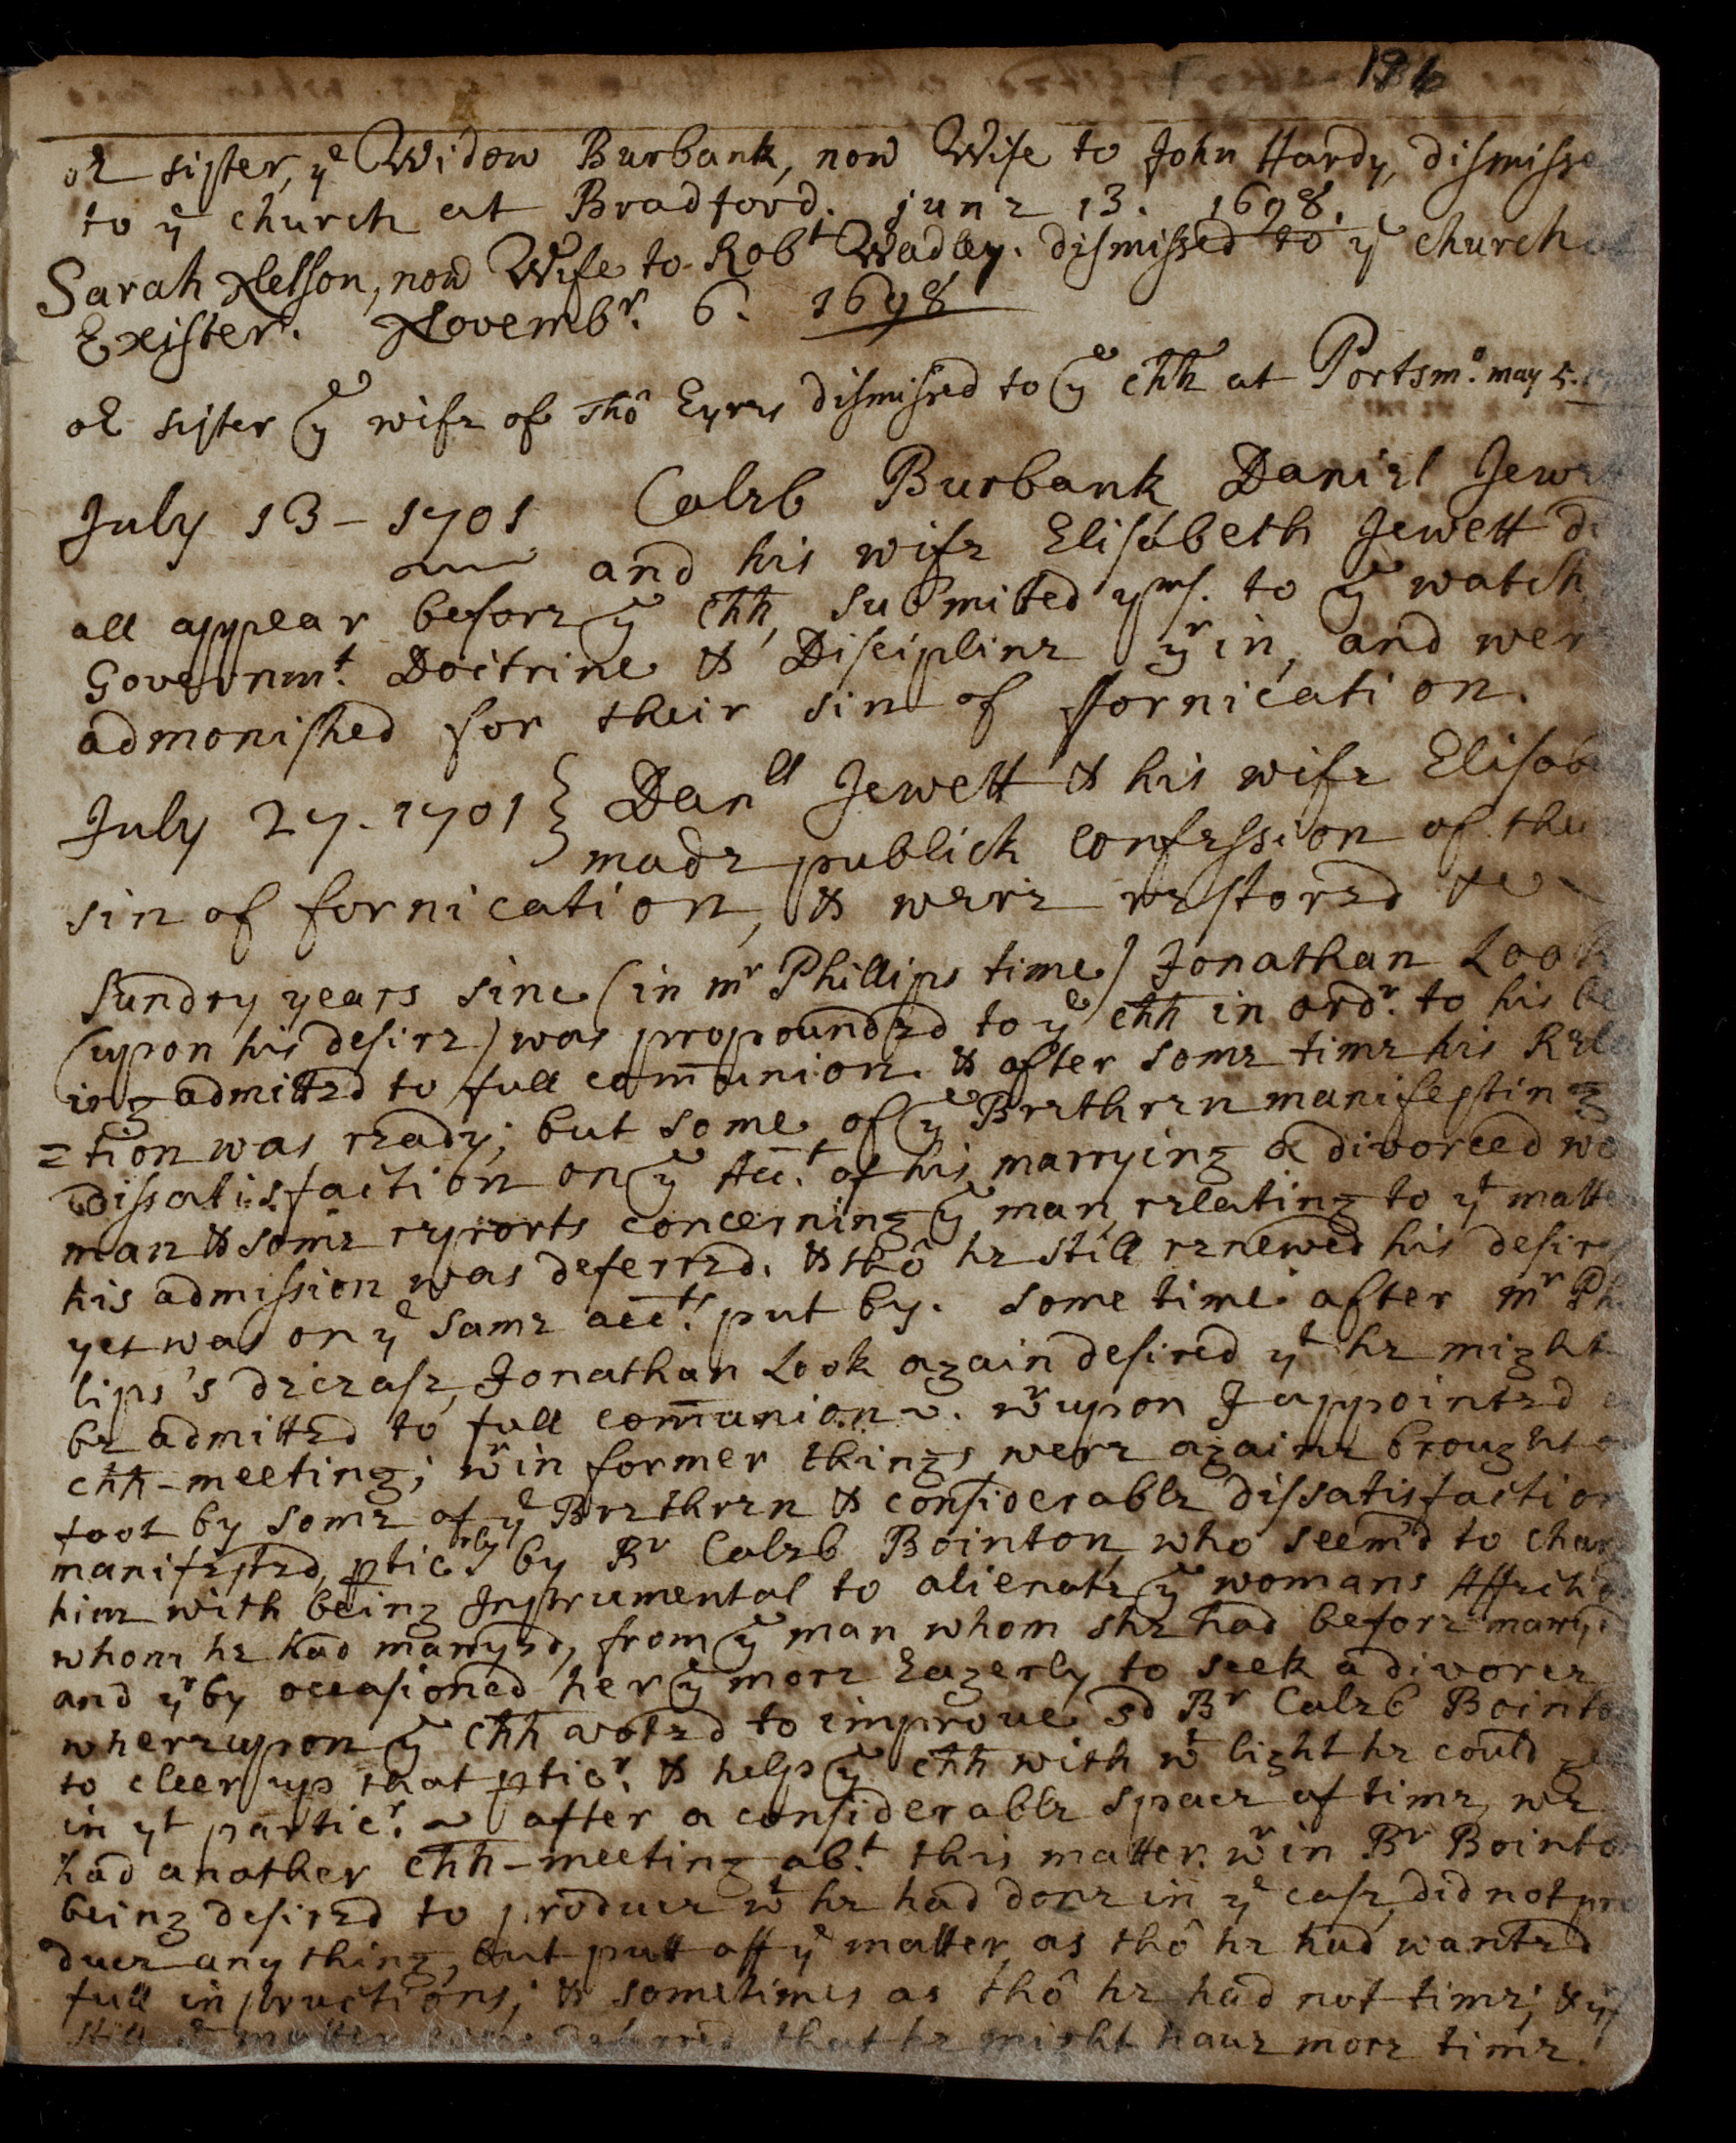 or sister, ye Widow Burbank, now Wife to John Hardy, dismisse
to ye church at Bradford. june 13. 1698.
Sarah Nelson, now Wife to Robt Wadley. dismissed to ye church at
Exister. Novembr. 6. 1698
or sister ye wife of Tho Eyres dismissed to ye chh at Portsmo. may 5.
July 13 - 1701 Caleb Burbank Daniel Jewett
and his wife Elisabeth Jewett di
all appear before ye chh, submitted yms. to ye watch
Governmt. Doctrine & Discipline yrin, and were
admonished for their sin of fornication.
July 27. 1701 } Danll Jewett & his wife Elisabe
made publick confession of their
sin of fornication, & were restored &c
Sundry years sinc (in mr Phillips time) Jonathan Look
(upon his desire) was propounded to ye chh in ordr. to his be
ing admitted to full com̄union. & after some time his Rela
=tion was ready; but some of ye Brethren manifesting
dissatisfaction on ye Acct. of his marrying a divorced wo
man & some reports concerning ye man relating to yt matter
his admission was deferred. & thô he still renewed his desire
yet was on ye same acct. put by. Some time after mr Phi
lips's decease, Jonathan Look again desired yt he might
be admitted to full com̄union. wrupon I appointed a
chh-meeting; wrin former things were againe brought on
foot by some of ye Brethren & considerable dissatisfaction
manifested, pticrly by Br Caleb Bointon, who seem'd to charge
him with being Instrumental to alienate ye womans Affectio
whom he had marryed, from ye man whom she had before marry'd
and yrby occasioned her ye more Eagerly to seek a divorce
whereupon ye chh voted to improve sd Br Caleb Bointon
to cleer up that pticr. & help ye chh with wt light he could ge
in yt particr. after a considerable space of time, we
had another chh-meeting abt. this matter. wrin Br Bointon
being desired to produce wt he had done in ye case, did not pro
duce any thing, but putt off ye matter, as thô he had wanted
full instructions; & sometimes as thô he had not time; &
still ye matter that he might have more time.